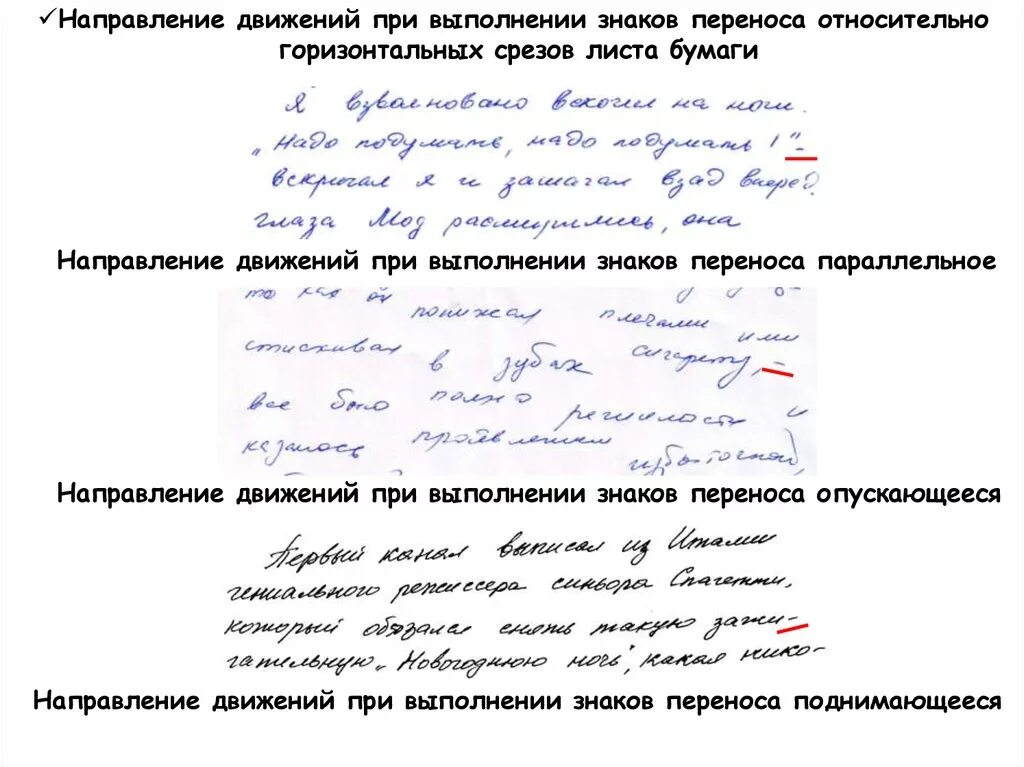 ✓Направление движений при выполнении знаков переноса относительно
горизонтальных срезов листа бумаги
Я взволновано вскочил на ноги.
„Надо подумать, надо подумать!"-
вскричал я и зашагал взад вперед.
глаза Мод расширились, она
Направление движений при выполнении знаков переноса параллельное
то как он
понижал плечами или
стискивал в зубах сигарету, -
все было полно решимости и
казалось проявлением избыточной,
Направление движений при выполнении знаков переноса опускающееся
Первый канал выписал из Италии
гениального режиссера синьора Спагетти,
который обязался снять такую зажи-
гательную „Новогоднюю ночь", какая нико-
Направление движений при выполнении знаков переноса поднимающееся